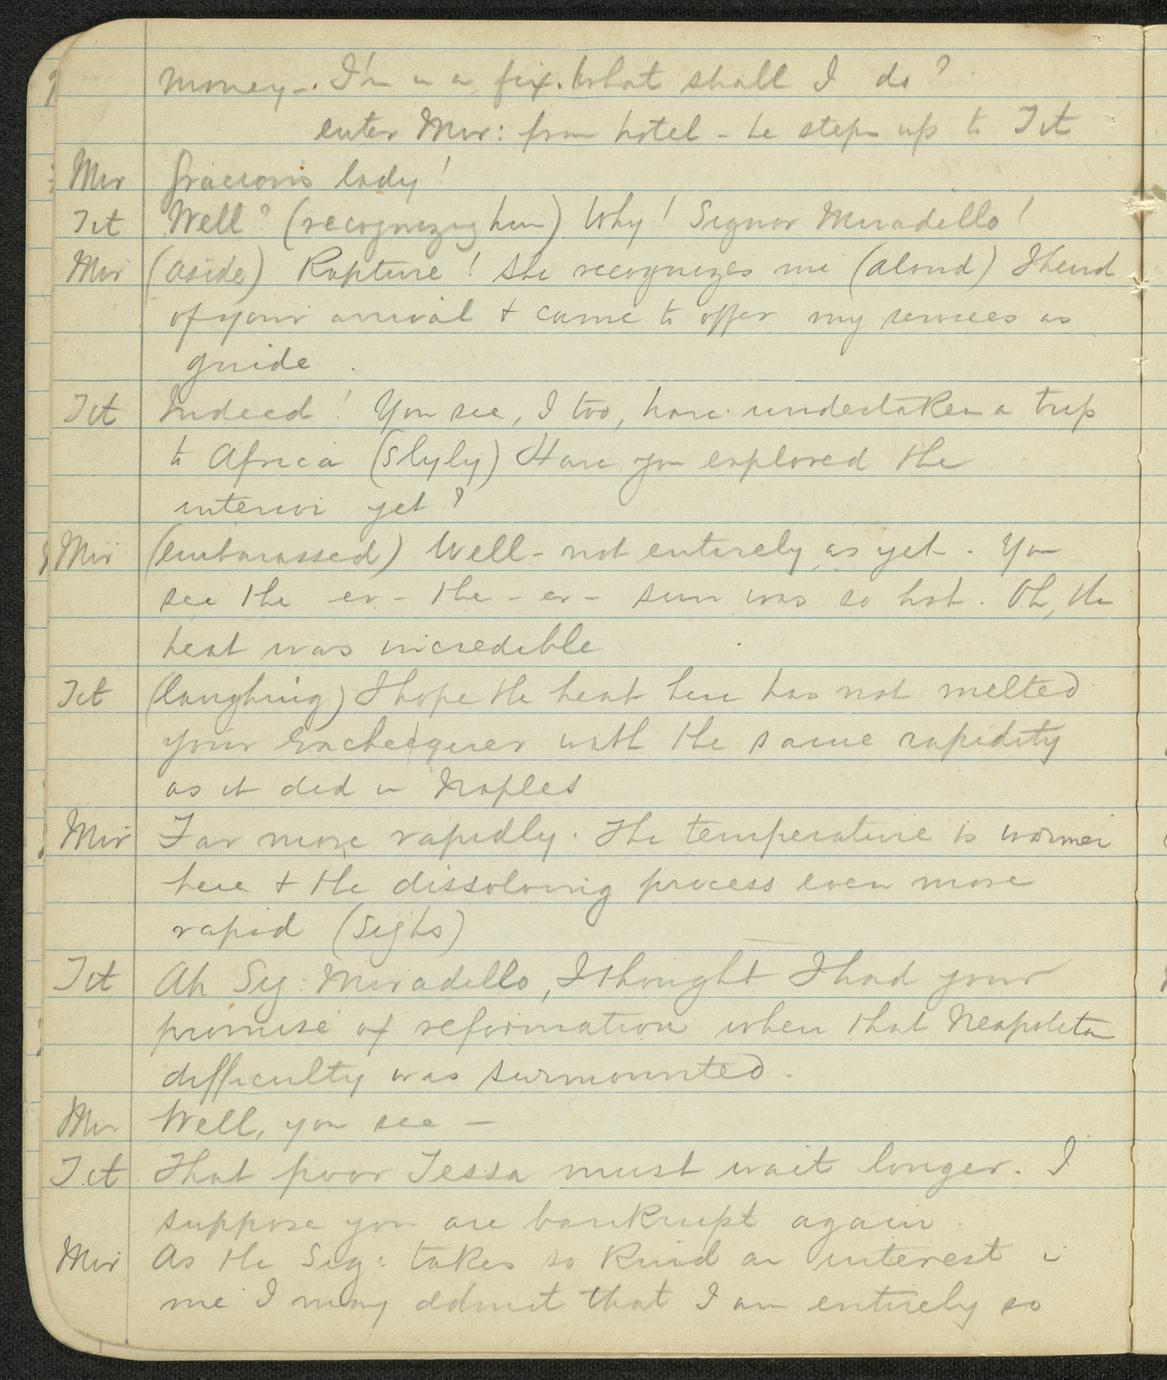 money –. I'm in a fix. What shall I do?
enter Mir: from hotel – he steps up to Tit
Mir Gracious lady!
Tit Well? (recognizing him) Why! Signor Miradillo!
Mir (aside) Rapture! She recognizes me (aloud) I heard
of your arrival & came to offer my services as
guide.
Tit Indeed! You see, I too, have undertaken a trip
to Africa (slyly) Have you explored the
interior yet?
Mir (embarassed) Well – not entirely, as yet. You
see the er – the – er – sun was so hot. Oh, the
heat was incredible
Tit (laughing) I hope the heat here has not melted
your exchequer with the same rapidity
as it did in Naples
Mir Far more rapidly. The temperature is warmer
here & the dissolving process even more
rapid (sighs)
Tit Ah Sig: Miradello, I thought I had your
promise of reformation when that Neapolitan
difficulty was surmounted.
Mir Well, you see –
Tit That poor Tessa must wait longer. I
suppose you are bankrupt again.
Mir As the Sig: takes so kind an interest in
me I may admit that I am entirely so